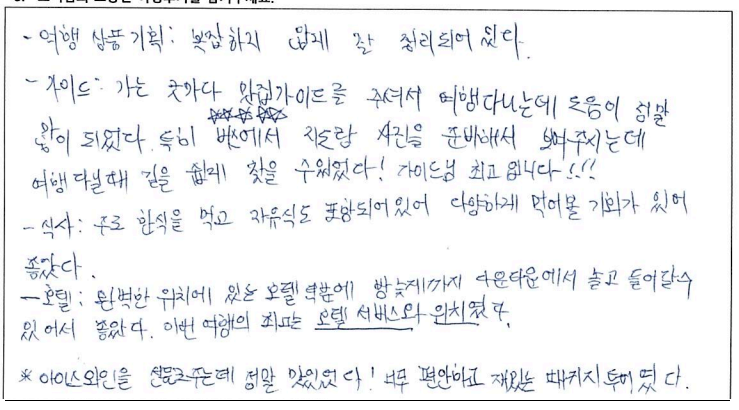 - 여행 상품 기획: 복잡하지 않게 잘 정리되어 있다.
- 가이드: 가는 곳마다 맛집가이드를 주셔서 여행다니는데 도움이 정말
많이 되었다. 특히 버스에서 지도랑 사진을 준비해서 보여주시는데
여행 다닐때 길을 쉽게 찾을 수있었다! 가이드님 최고 입니다!!!
- 식사: 주로 한식을 먹고 자유식도 포함되어있어 다양하게 먹어볼 기회가 있어
좋았다.
- 호텔: 완벽한 위치에 있는 호텔 덕분에 밤늦게까지 다운타운에서 놀고 들어갈수
있어서 좋았다. 이번 여행의 최고는 호텔 서비스와 위치였다.
* 아이스와인을 선물로주는데 정말 맛있었다! 너무 편안하고 재밌는 패키지 투어였다.